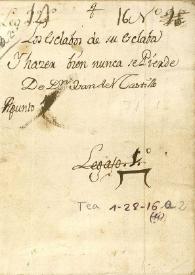 Leg. 14º 4 16 Nº
Los Esclabos de su Esclaba
Y hazer bien nunca se Pierde
De Dn Juan del Castillo
Apunto
Legajo 1º
Tea 1-28-16, a2